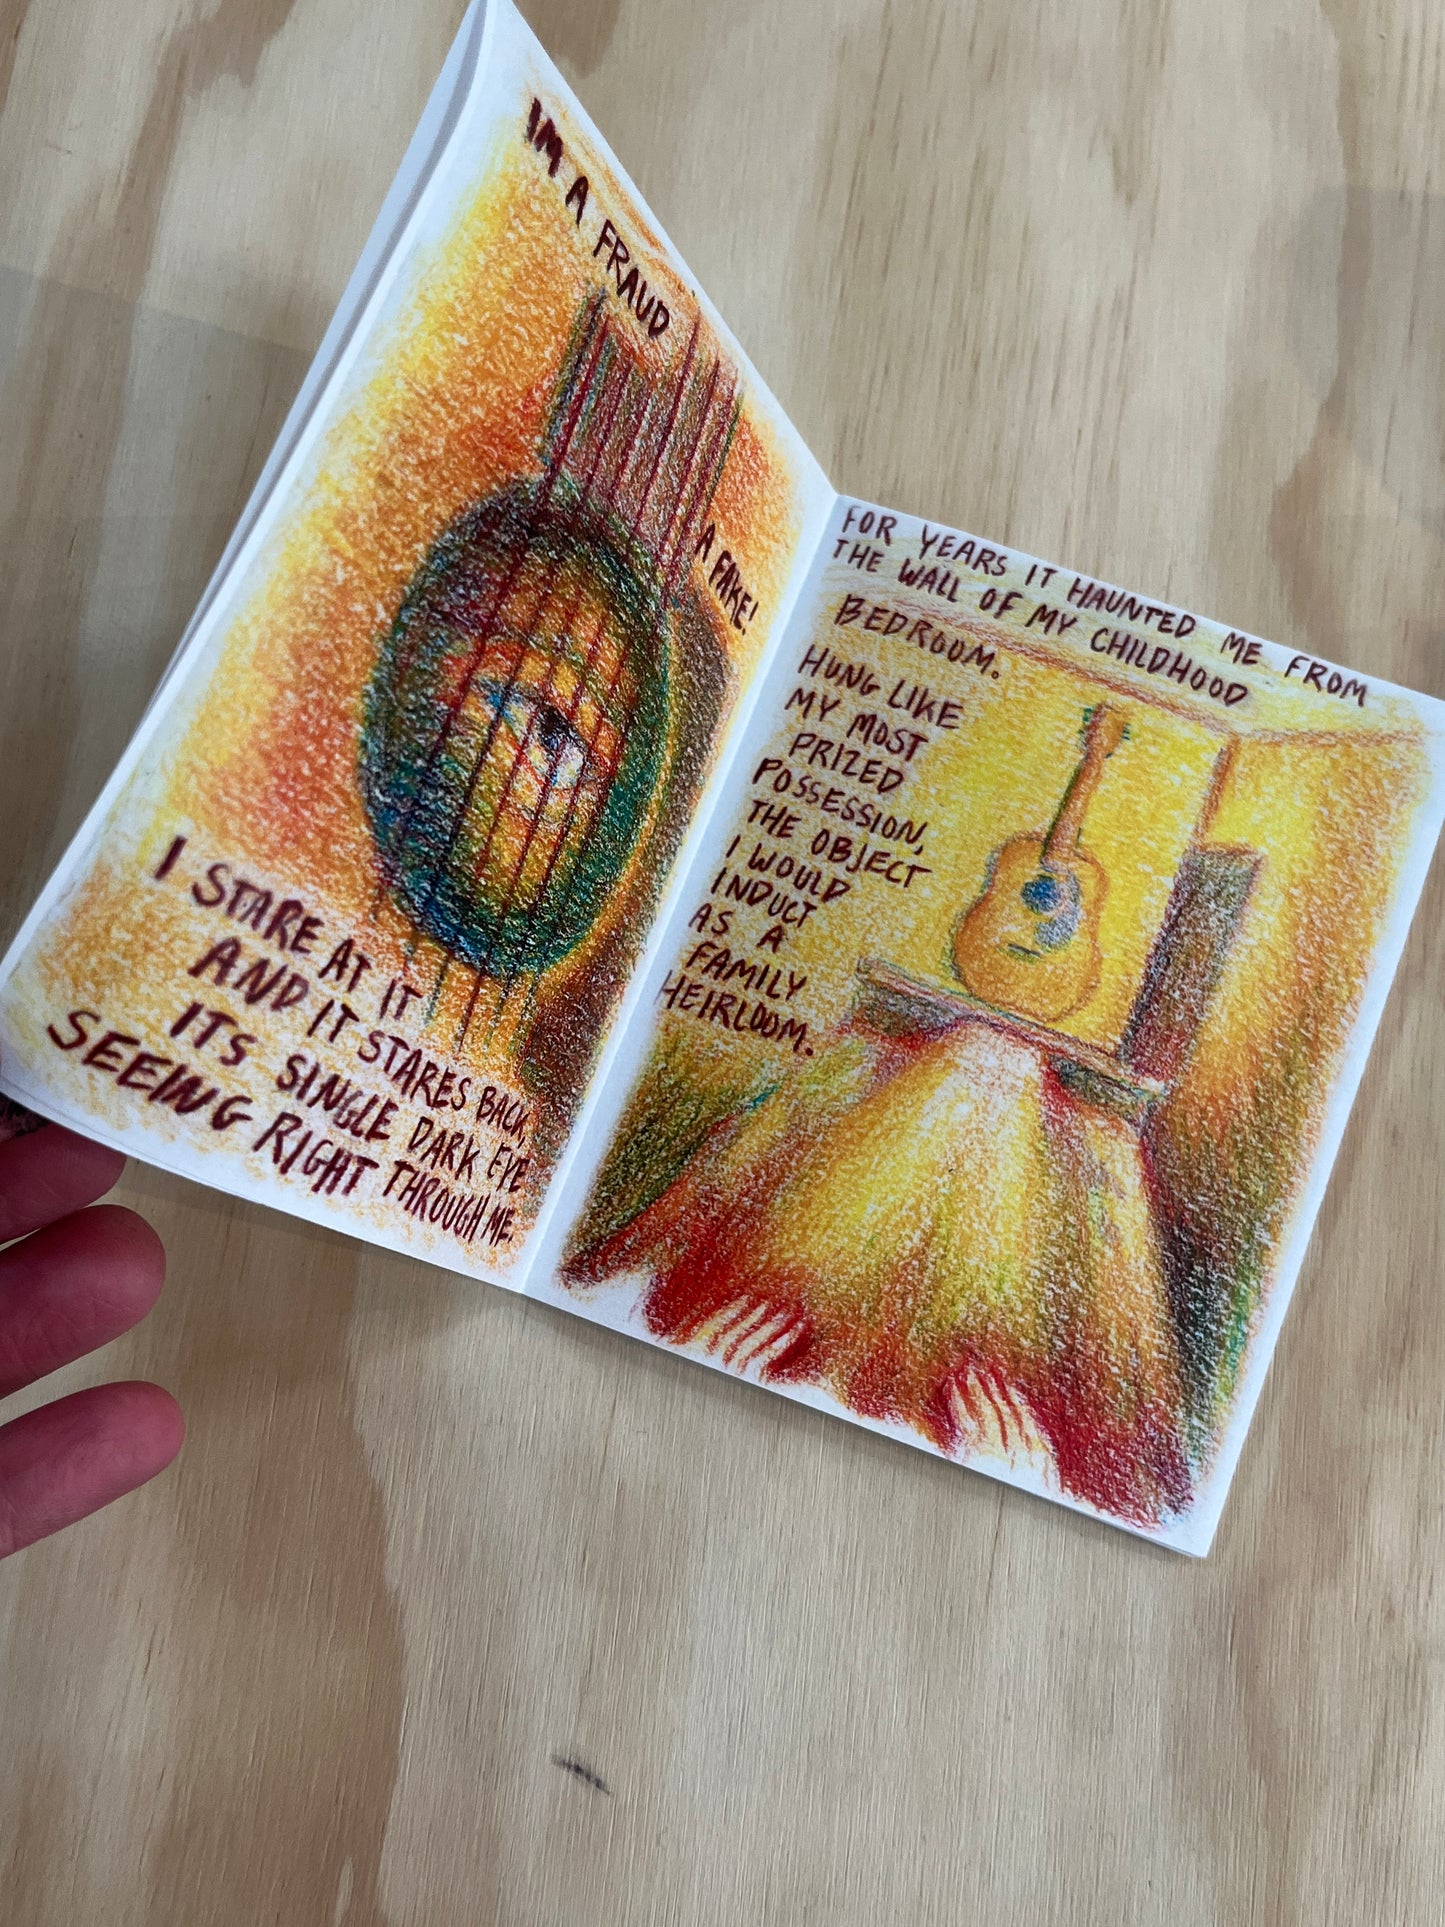 IM A FRAUD
A FAKE!
I STARE AT IT
AND IT STARES BACK,
ITS SINGLE DARK EYE
SEEING RIGHT THROUGH ME.
FOR YEARS IT HAUNTED ME FROM
THE WALL OF MY CHILDHOOD
BEDROOM.
HUNG LIKE
MY MOST
PRIZED
POSSESSION,
THE OBJECT
I WOULD
INDUCT
AS A
FAMILY
HEIRLOOM.